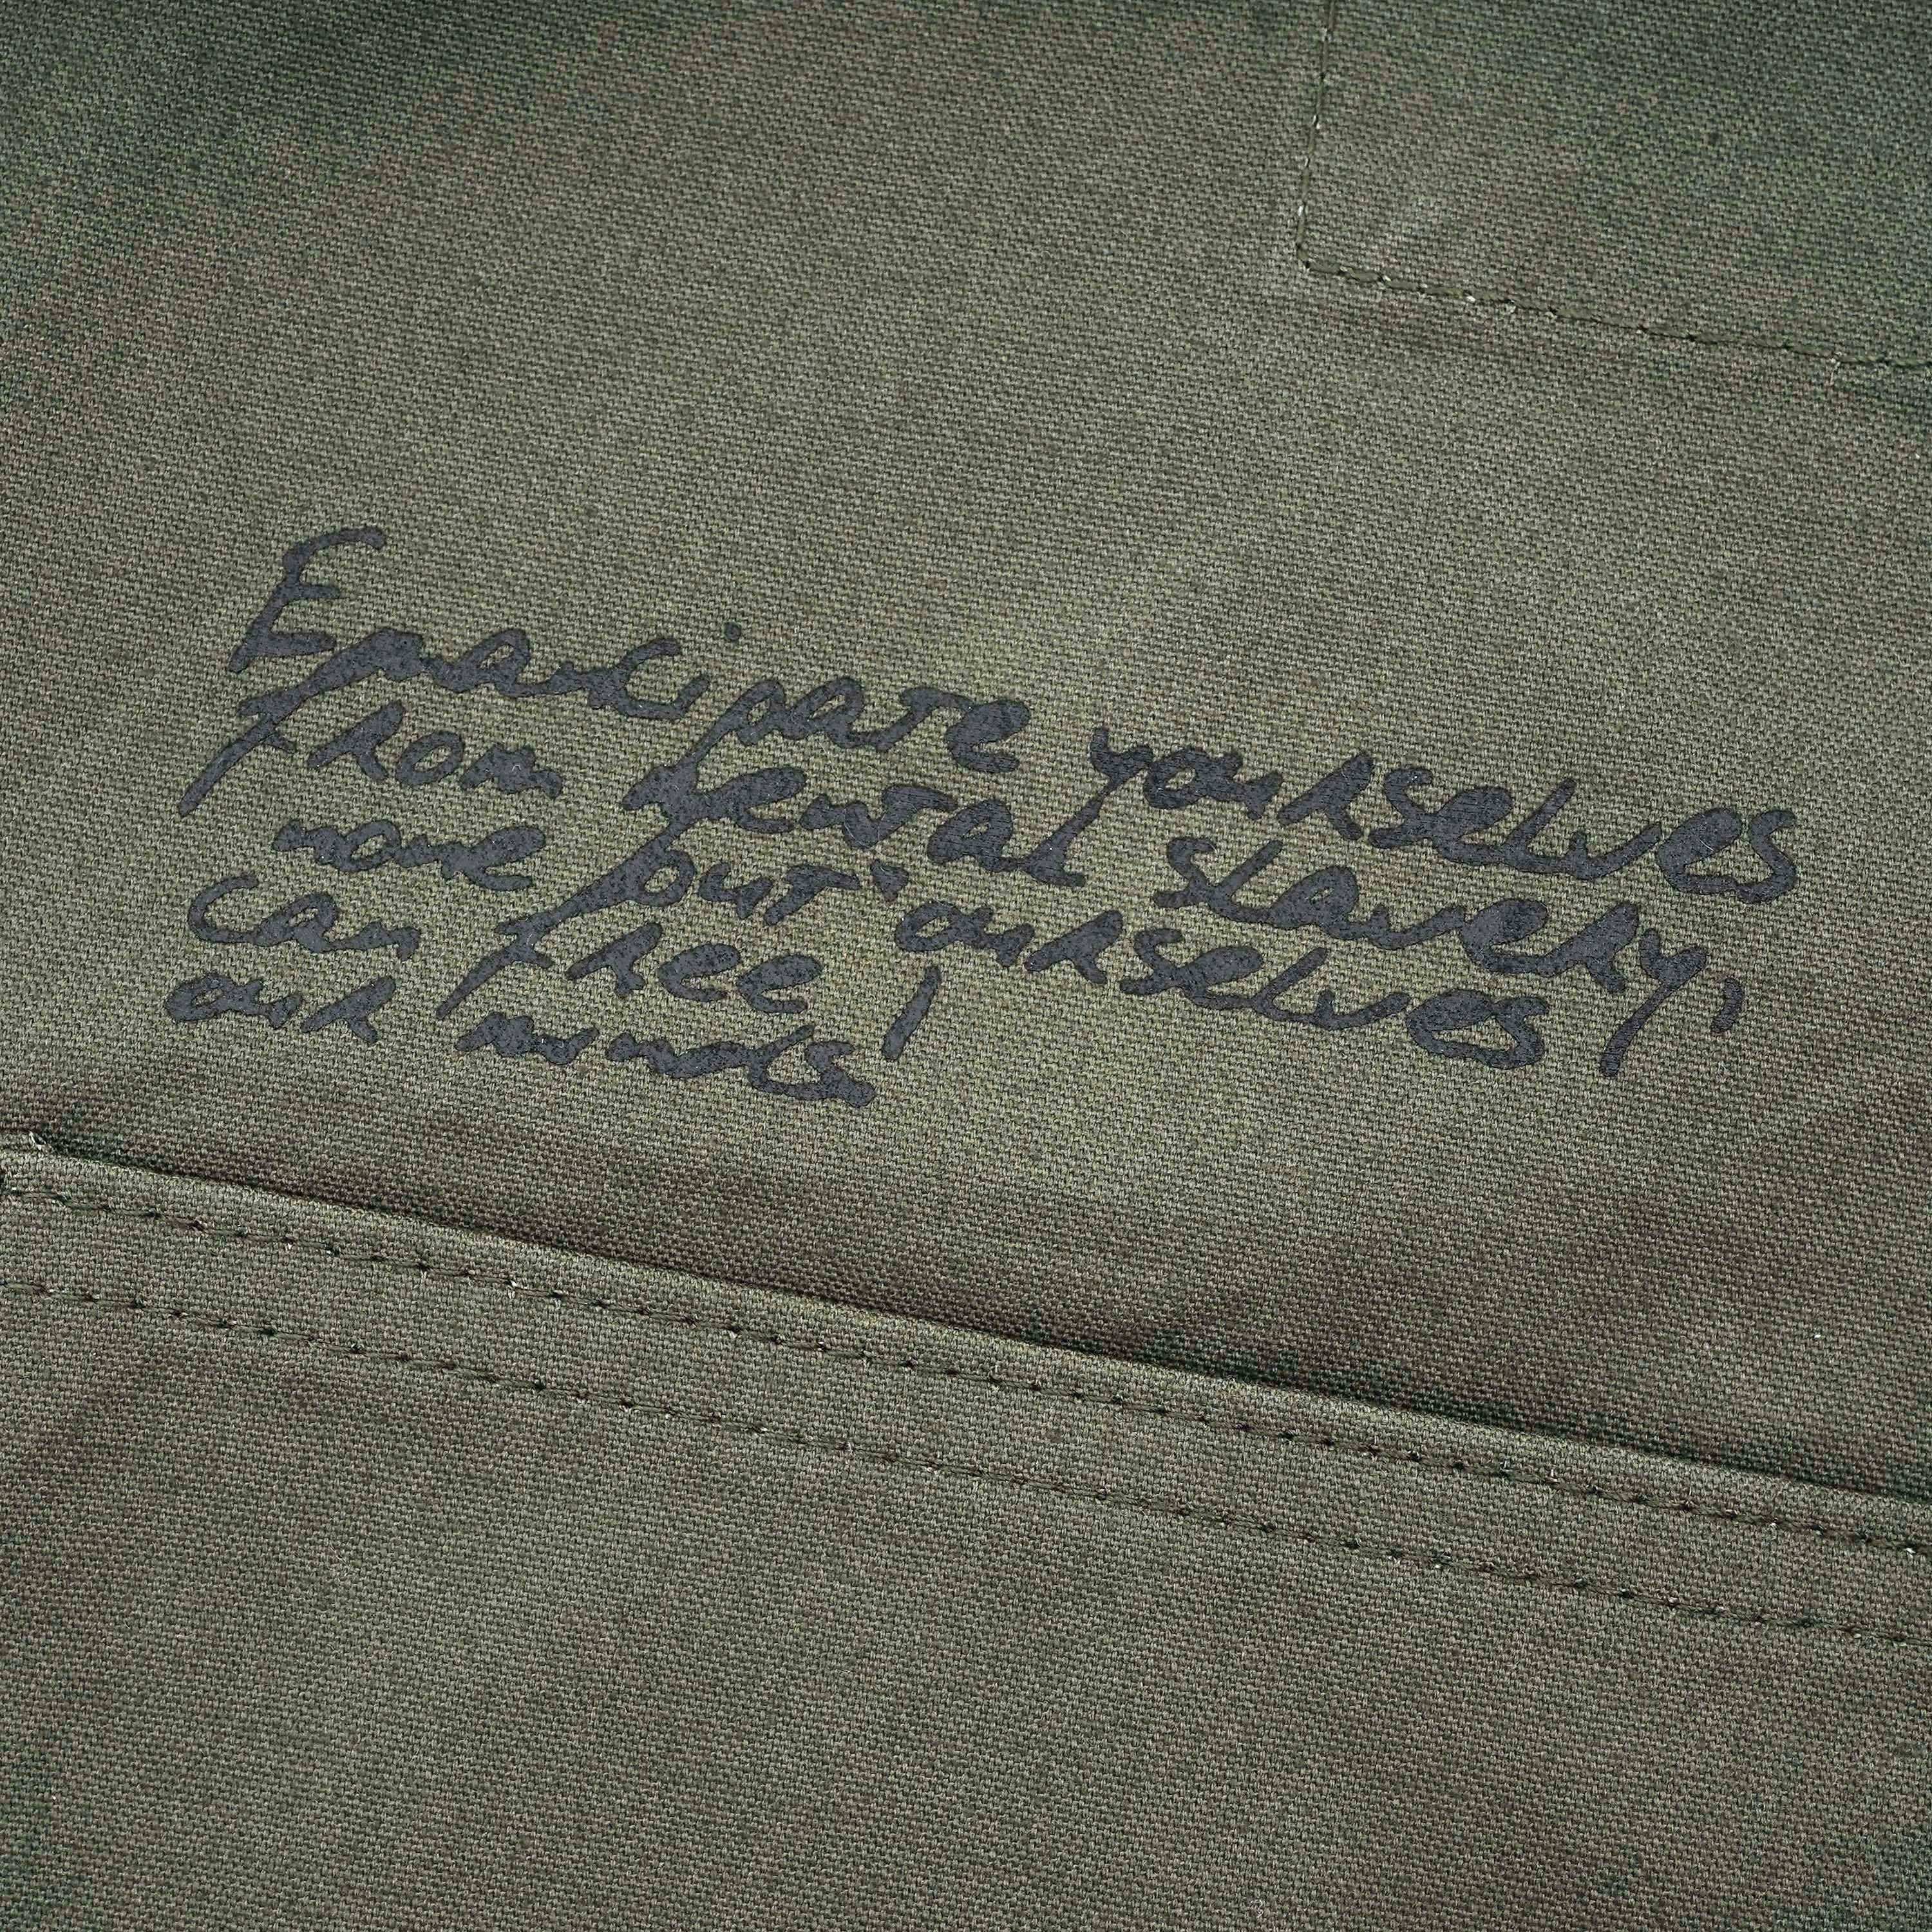 Emancipate yourselves
from mental slavery,
none but ourselves
can free
our minds!